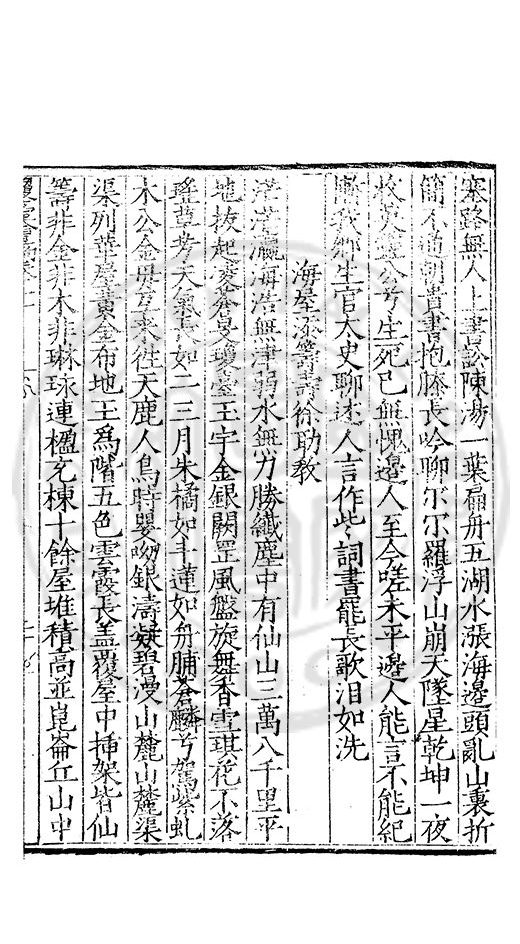 塞路無人上書訟陳湯一葉扁舟五湖水漲海邊頭亂山裏折
簡不通朝貴書抱膝長吟聊尔尔羅浮山崩天墜星乾坤一夜
收英靈公兮生死已無愧邊人至今嗟未平邊人能言不能紀
慚我鄉生官太史聊述人言作此詞書罷長歌泪如洗
海屋添籌壽徐助教
茫茫瀛海浩無津弱水無力勝纖塵中有仙山三萬八千里平
地拔起凌蒼旻瓊臺玉宇金銀闕罡風盤旋舞香雪琪花不落
瑤草芳天氣長如二三月朱橘如斗蓮如舟脯蒼麟兮駕紫虬
木公金母兮來往天鹿人鳥時嬰呦銀濤凝碧漫山麓山麓渠
渠列華屋黃金布地玉爲階五色雲霞長盖覆屋中揷架皆仙
籌非金非木非琳球連楹充棟十餘屋堆積高並崑崙丘山中